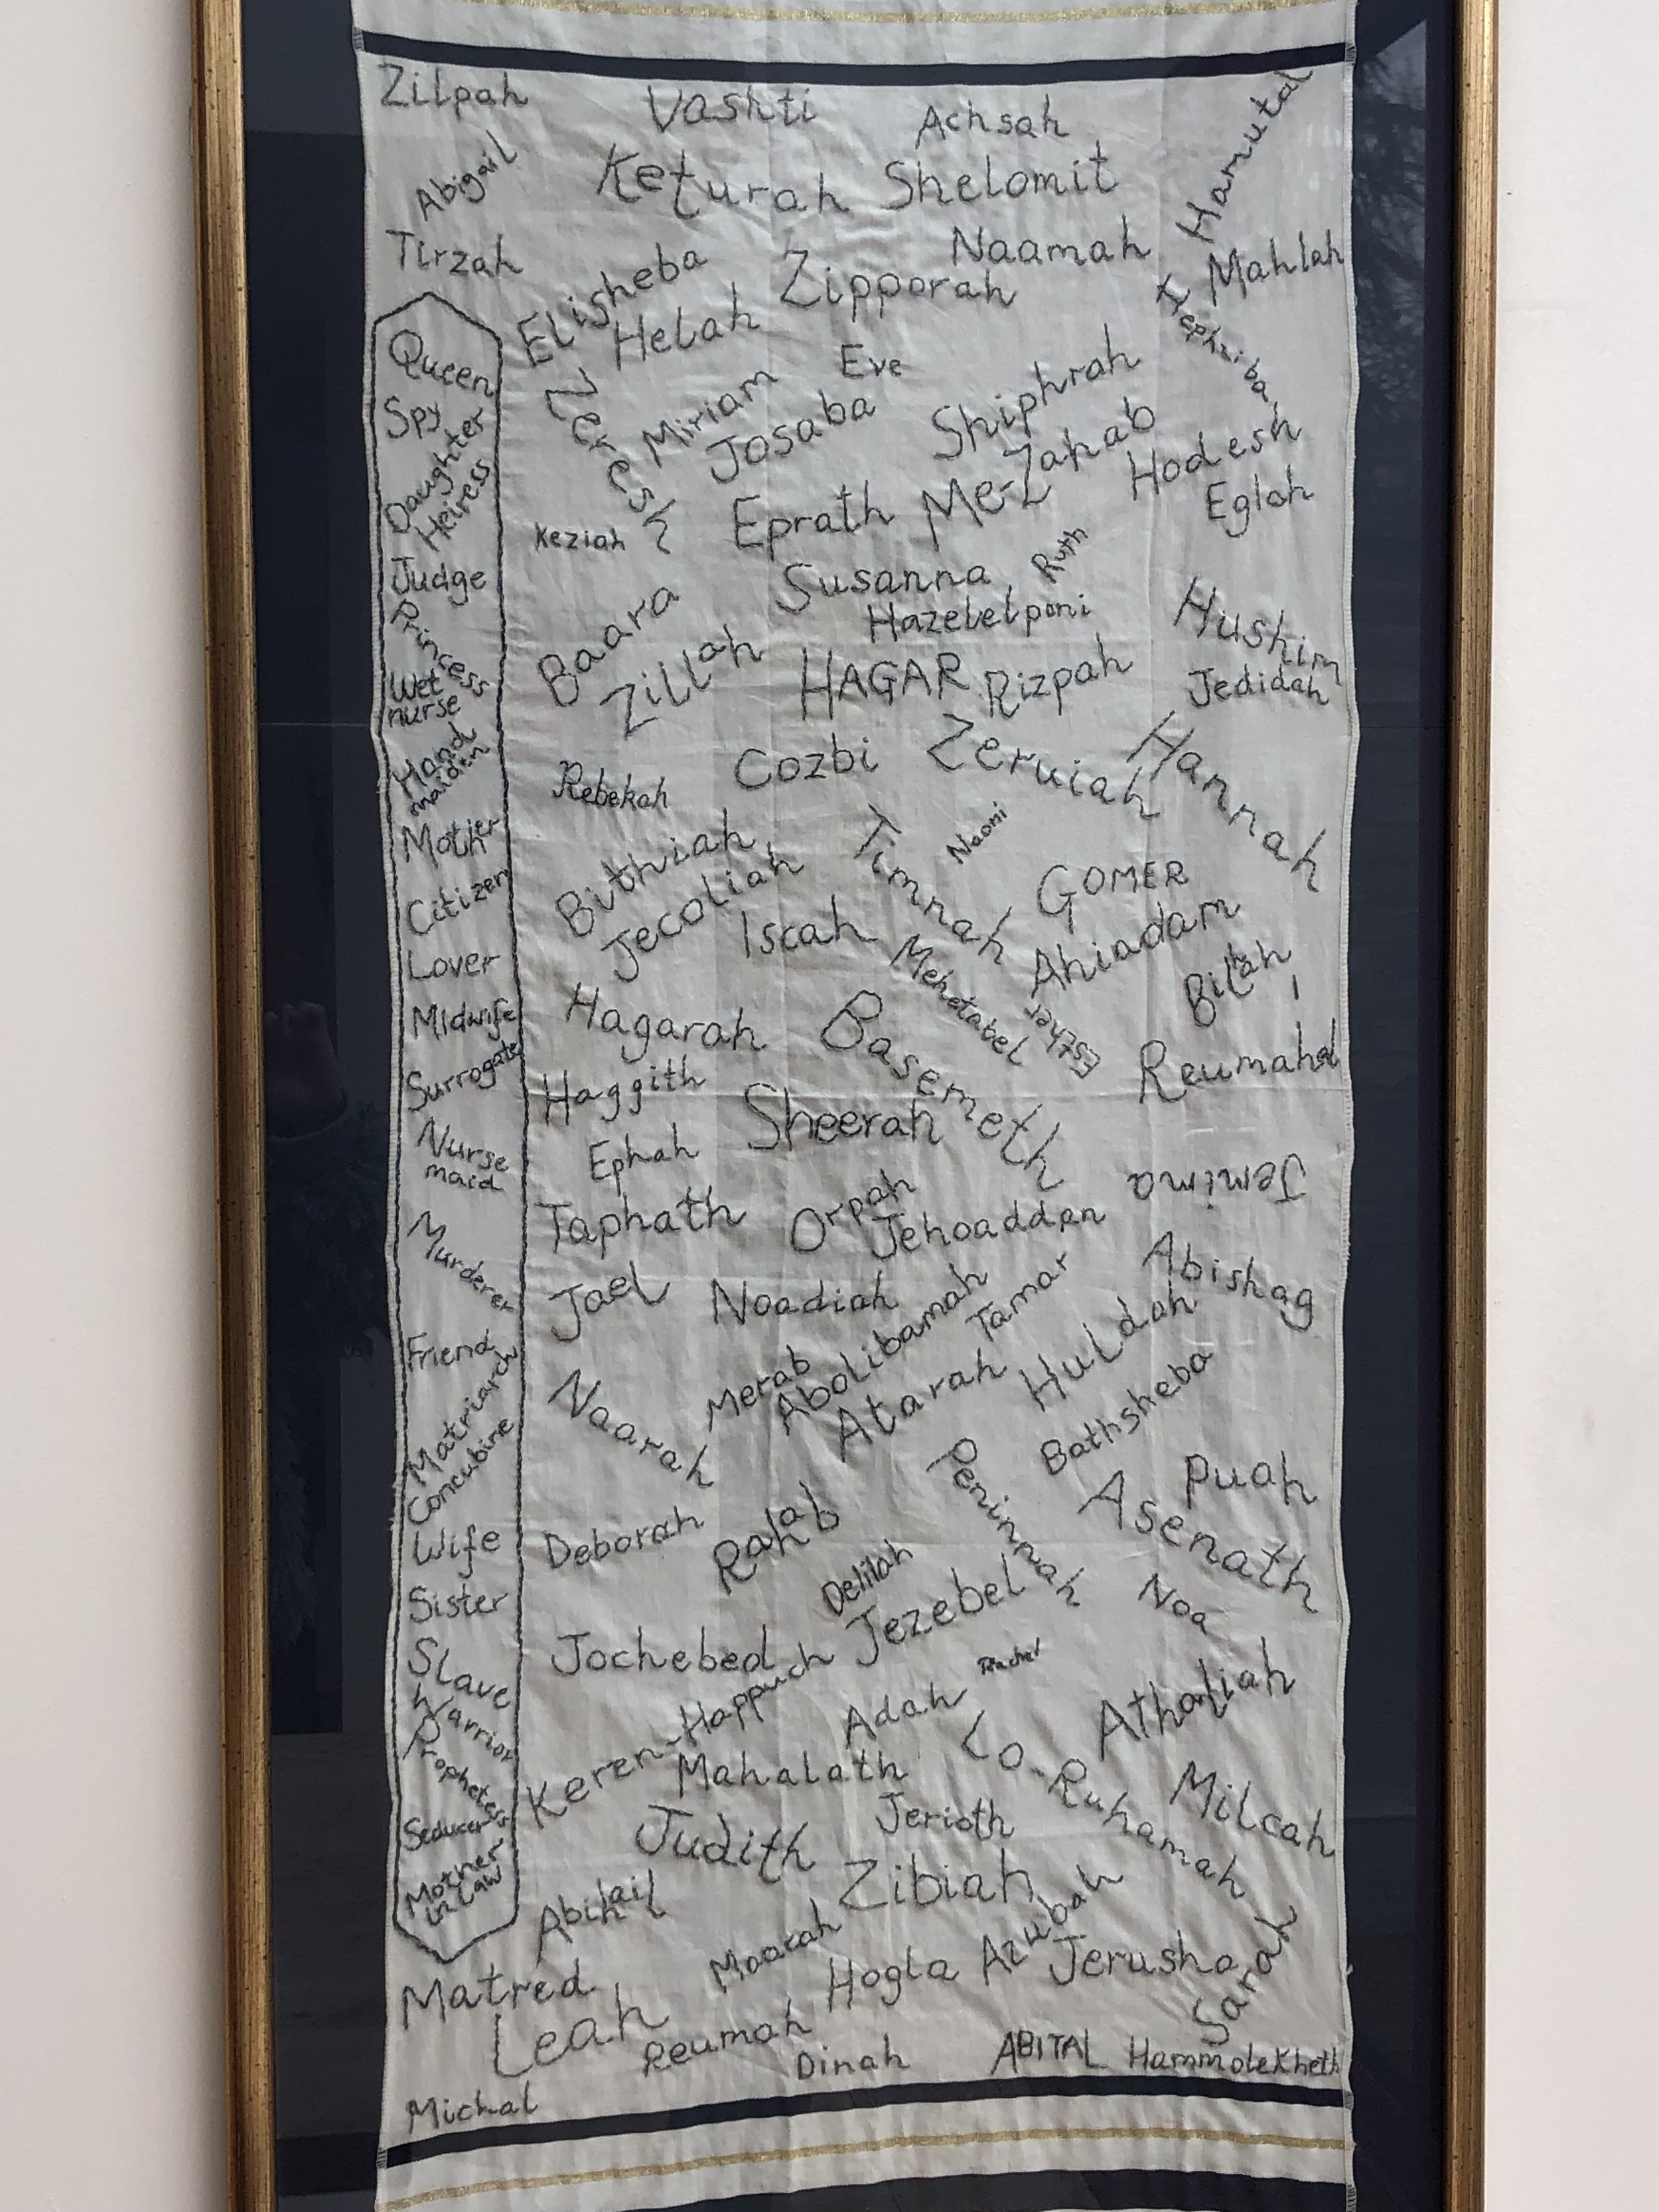 Zilpah
Vashti
Achsah
Hamutal
Abigail
Keturah
Shelomit
Tirzah
Elisheba
Naamah
Mahlah
Zipporah
Helah
Queen
Spy
Daughter
Heiress
Judge
Princess
Wet
nurse
Hand
maiden
Mother
Citizen
Lover
Midwife
Surrogate
Nurse
maid
Murderer
Friend
Matriarch
Concubine
Wife
Sister
Slave
Warrior
Seducer
Mother
in Law
Eve
Zeresh
Miriam
Josaba
Shiphrah
Me-Zahab
Hodesh
Eglah
Eprath
Keziah
Ruth
Susanna
Hazelelponi
Hushim
Baara
Zillah
HAGAR
Rizpah
Jedidah
Cozbi
Zeruiah
Hannah
Rebekah
Naomi
Bithiah
Timnah
Jecoliah
GOMER
Iscah
Ahiadam
Bilhah
Mehetabel
Esther
Hagarah
Basemeth
Haggith
Sheerah
Ephah
Jemima
Taphath
Orpah
Jehoaddan
Abishag
Jael
Noadiah
Aholibamah
Tamar
Huldah
Merab
Atarah
Naarah
Bathsheba
Peninnah
Puah
Asenath
Rahab
Deborah
Delilah
Jezebel
Noa
Jochebed
Rachel
Keren-Happuch
Adah
Athaliah
Mahalath
Lo-Ruhamah
Milcah
Jerioth
Judith
Zibiah
Abihail
Maacah
Azubah
Hogla
Jerusha
Sarah
Matred
Leah
Reumah
Dinah
ABITAL
Hammolekheth
Michal